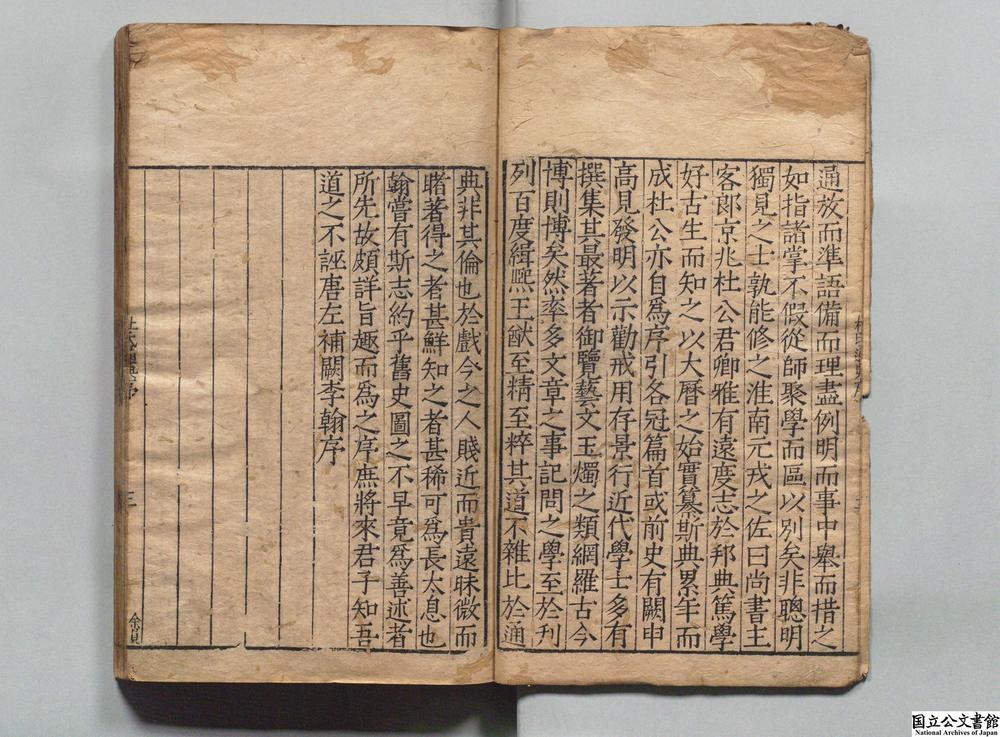 通放而準語備而理盡例明而事中舉而措之
如指諸掌不假從師聚學而區以別矣非聰明
獨見之士孰能修之淮南元戎之佐曰尚書主
客郎京兆杜公君卿雅有遠度志於邦典篤學
好古生而知之以大曆之始實纂斯典累年而
成杜公亦自爲序引各冠篇首或前史有闕申
高見發明以示勸戒用存景行近代學士多有
撰集其最著者御覽藝文玉燭之類網羅古今
博則博矣然率多文章之事記問之學至於刊
列百度緝熙王猷至精至粹其道不雜比於通
典非其倫也於戲今之人賤近而貴遠昧微而
睹著得之者甚鮮知之者甚稀可爲長太息也
翰嘗有斯志約乎舊史圖之不早竟爲善述者
所先故頗詳旨趣而爲之序庶將來君子知吾
道之不誣唐左補闕李翰序
三
国立公文書館
National Archives of Japan